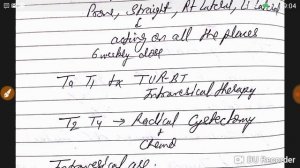 Prone, Straight, Rt lateral, Lt lateral
↓
acting on all the places
6 weekly dose
T₀ T₁ tx TUR-BT
Intravesical therapy
T₂ T₄ → Radical Cystectomy
+
Chemo
Intravesical use
9:04
DU Recorder